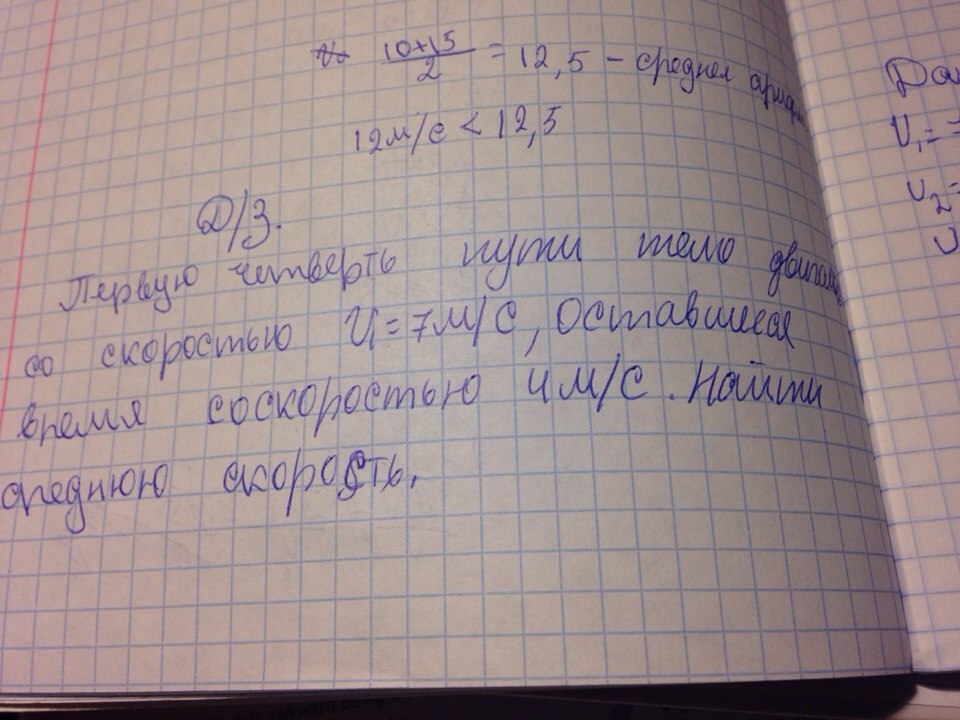 10+15 / 2 = 12,5 – среднее
12м/с < 12,5
Д/З.
Первую четверть пути тело
со скоростью V₁=7м/с, оставшееся
время соскоростью 4м/с. Найти
среднюю скорость.
V₁=
V₂=